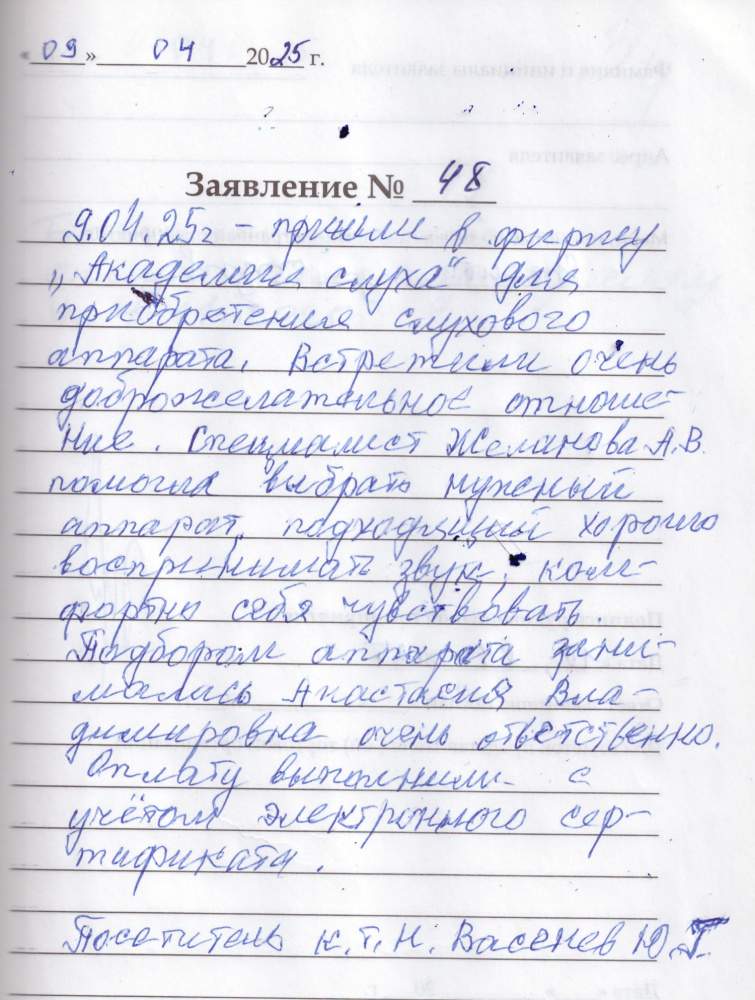 « 09 » 04 2025 г.
Заявление № 48
9.04.25г – пришли в фирму
„Академия слуха" для
приобретения слухового
аппарата. Встретили очень
доброжелательное отноше-
ние. Специалист Желанова А.В.
помогла выбрать нужный
аппарат, подходящий хорошо
воспринимать звук, ком-
фортно себя чувствовать.
Подбором аппарата зани-
малась Анастасия Вла-
димировна очень ответственно.
Оплату выполнили с
учётом электронного сер-
тификата.
Посетитель к.т.н. Васенев Ю.Г.